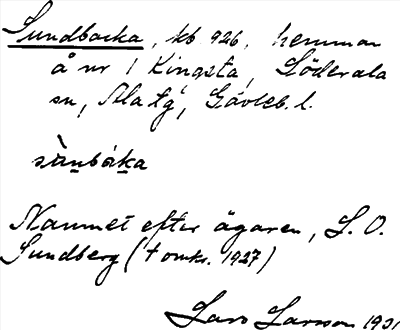 Sundbacka, kb 926, hemman
å nr 1 Kingsta, Söderala
sn, Ala tg, Gävleb. l.
Namnet efter ägaren, L. O.
Sundberg († omkr. 1927)
Lars Larsson 1931